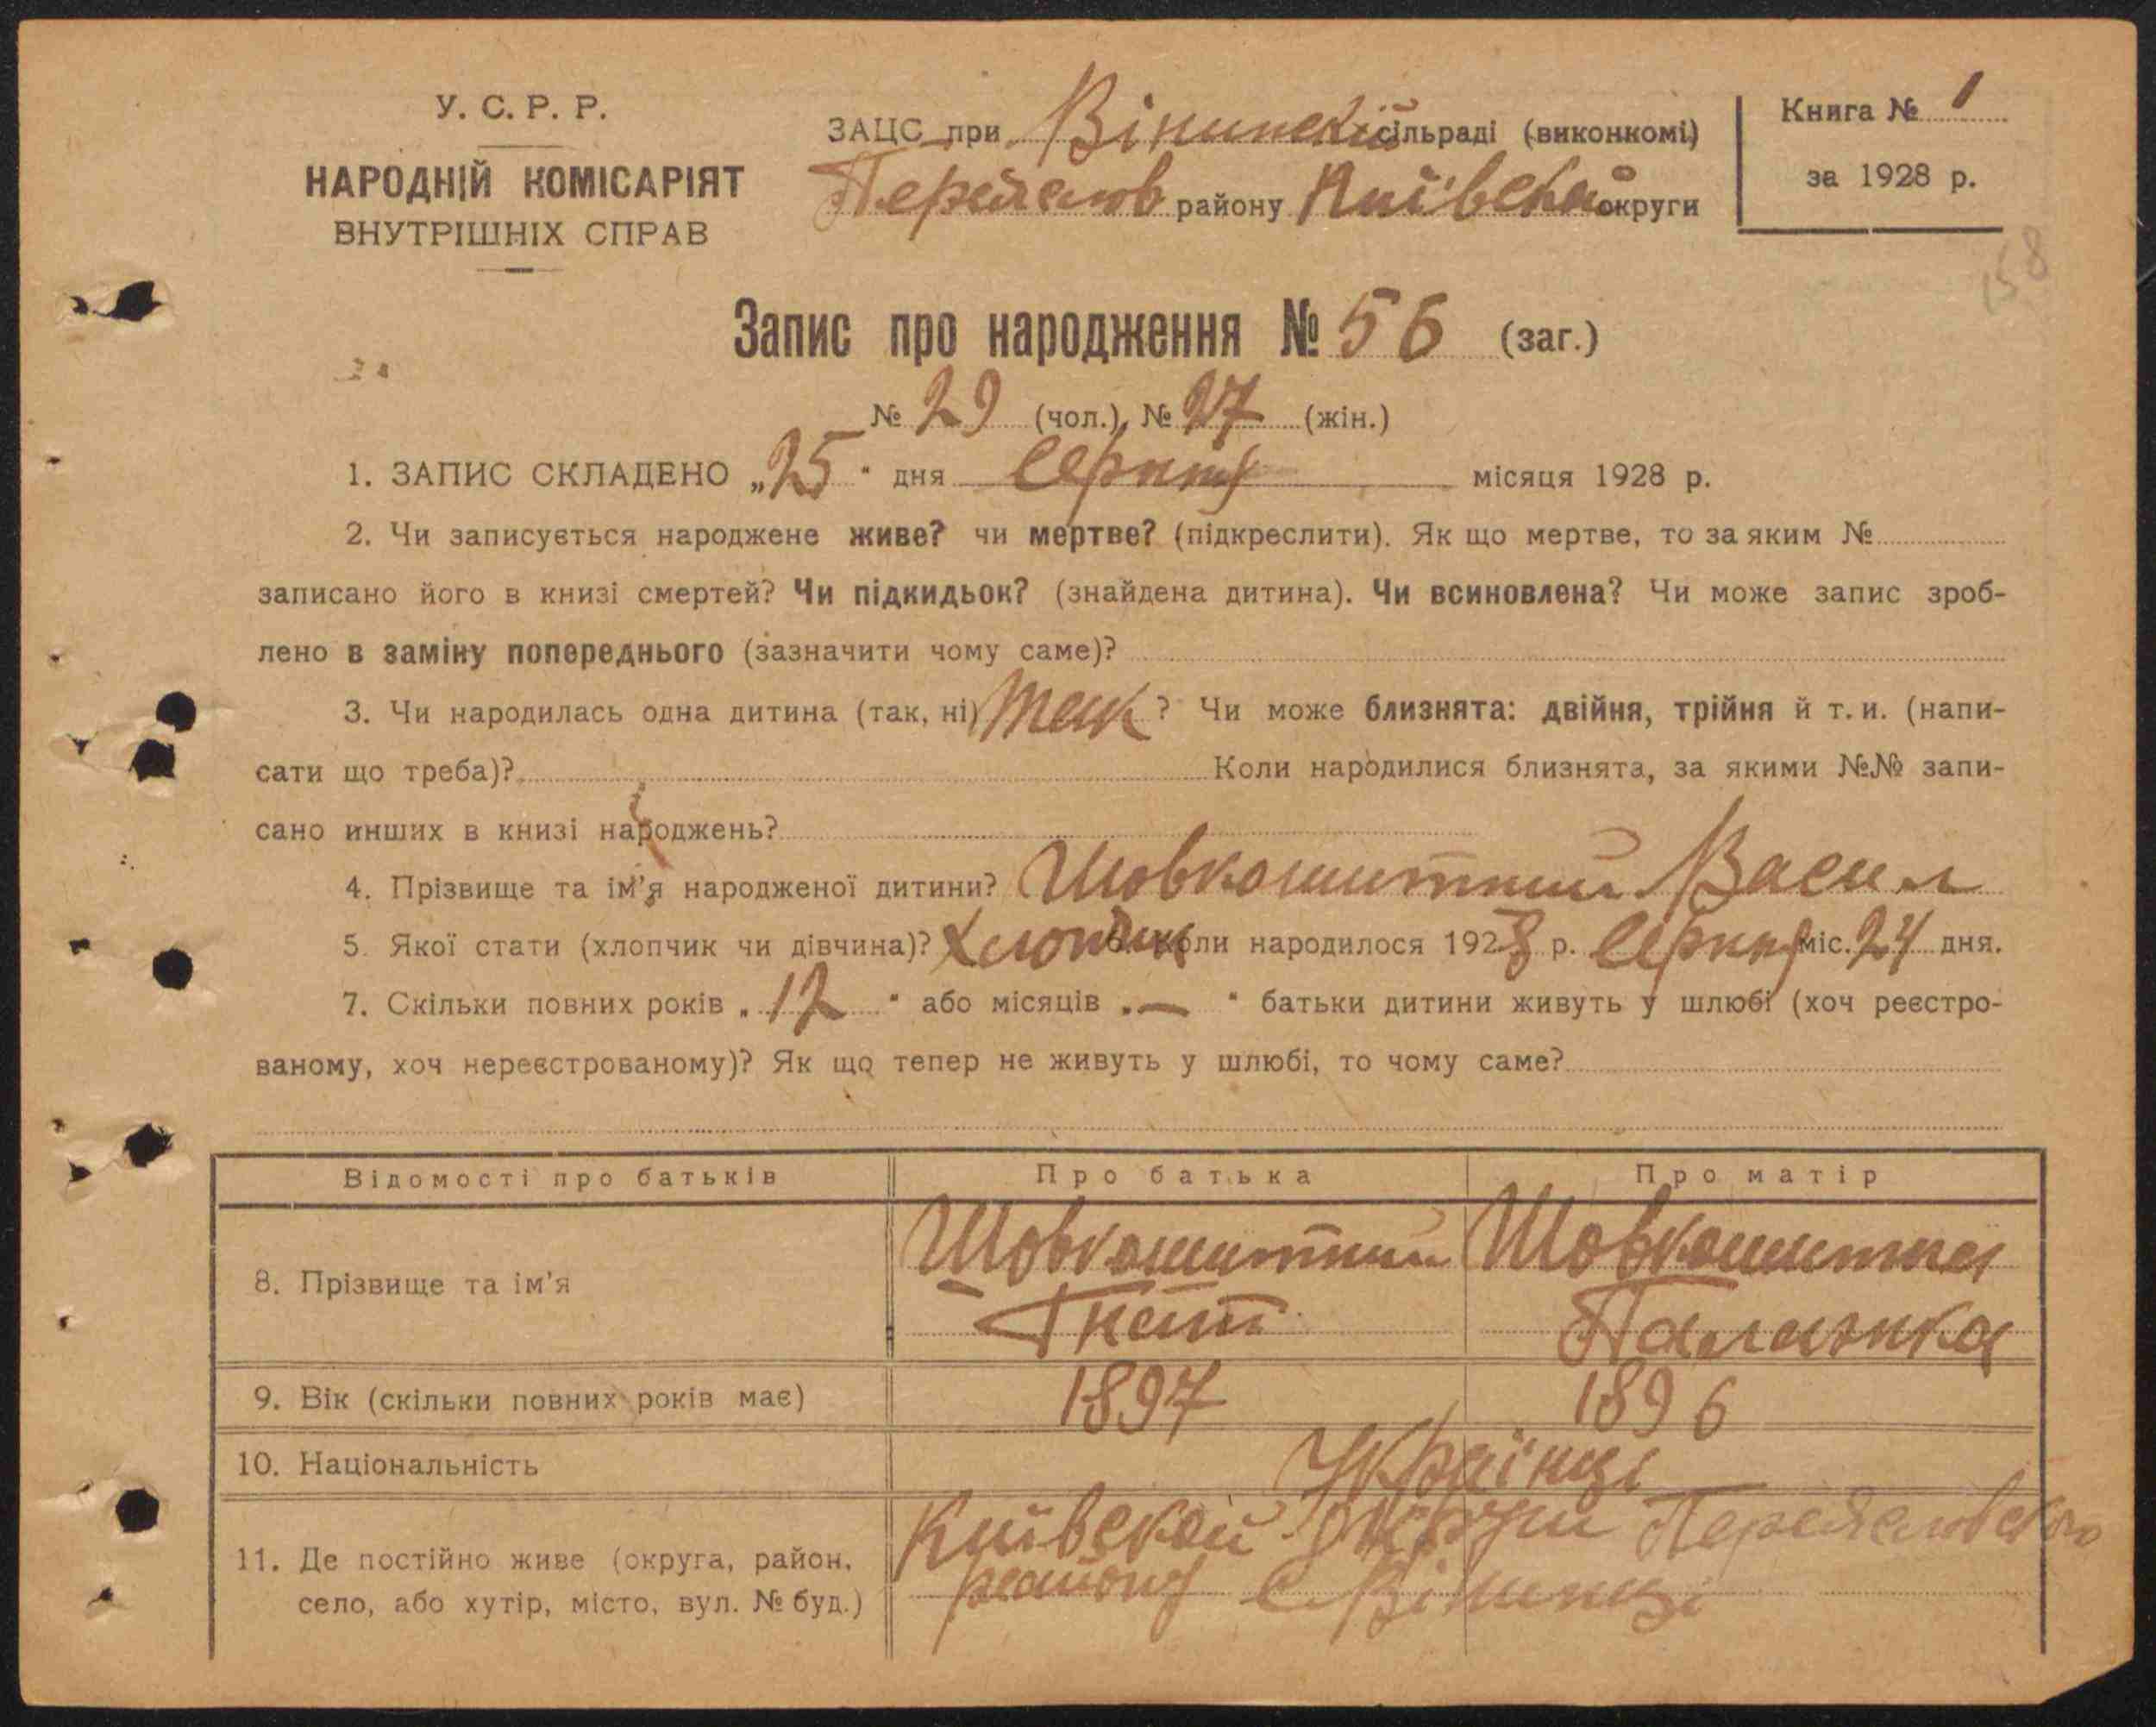 У. С. Р. Р.
НАРОДНІЙ КОМІСАРІЯТ
ВНУТРІШНІХ СПРАВ
ЗАЦС при Вінинській сільраді (виконкомі)
Переяслов району Київської округи
Книга № 1
за 1928 р.
158
Запис про народження № 56 (заг.)
№ 29 (чол.), № 27 (жін.)
1. ЗАПИС СКЛАДЕНО „25" дня Серпня місяця 1928 р.
2. Чи записується народжене живе? чи мертве? (підкреслити). Як що мертве, то за яким №
записано його в книзі смертей? Чи підкидьок? (знайдена дитина). Чи всиновлена? Чи може запис зроб-
лено в заміну попереднього (зазначити чому саме)?
3. Чи народилась одна дитина (так, ні) Так? Чи може близнята: двійня, трійня й т. и. (напи-
сати що треба)? Коли народилися близнята, за якими №№ запи-
сано инших в книзі народжень?
4. Прізвище та ім'я народженої дитини? Шовкошитний Васил
5. Якої стати (хлопчик чи дівчина)? Хлопчик 6. Коли народилося 1928 р. Серпня міс. 24 дня.
7. Скільки повних років „12" або місяців „—" батьки дитини живуть у шлюбі (хоч реєстро-
ваному, хоч нереєстрованому)? Як що тепер не живуть у шлюбі, то чому саме?
Відомості про батьків Про батька Про матір
8. Прізвище та ім'я Шовкошитний Гнат Шовкошитна Палажка
9. Вік (скільки повних років має) 1897 1896
10. Національність Українці
11. Де постійно живе (округа, район, Київской округи Переясловского
село, або хутір, місто, вул. № буд.) району с Вінинці